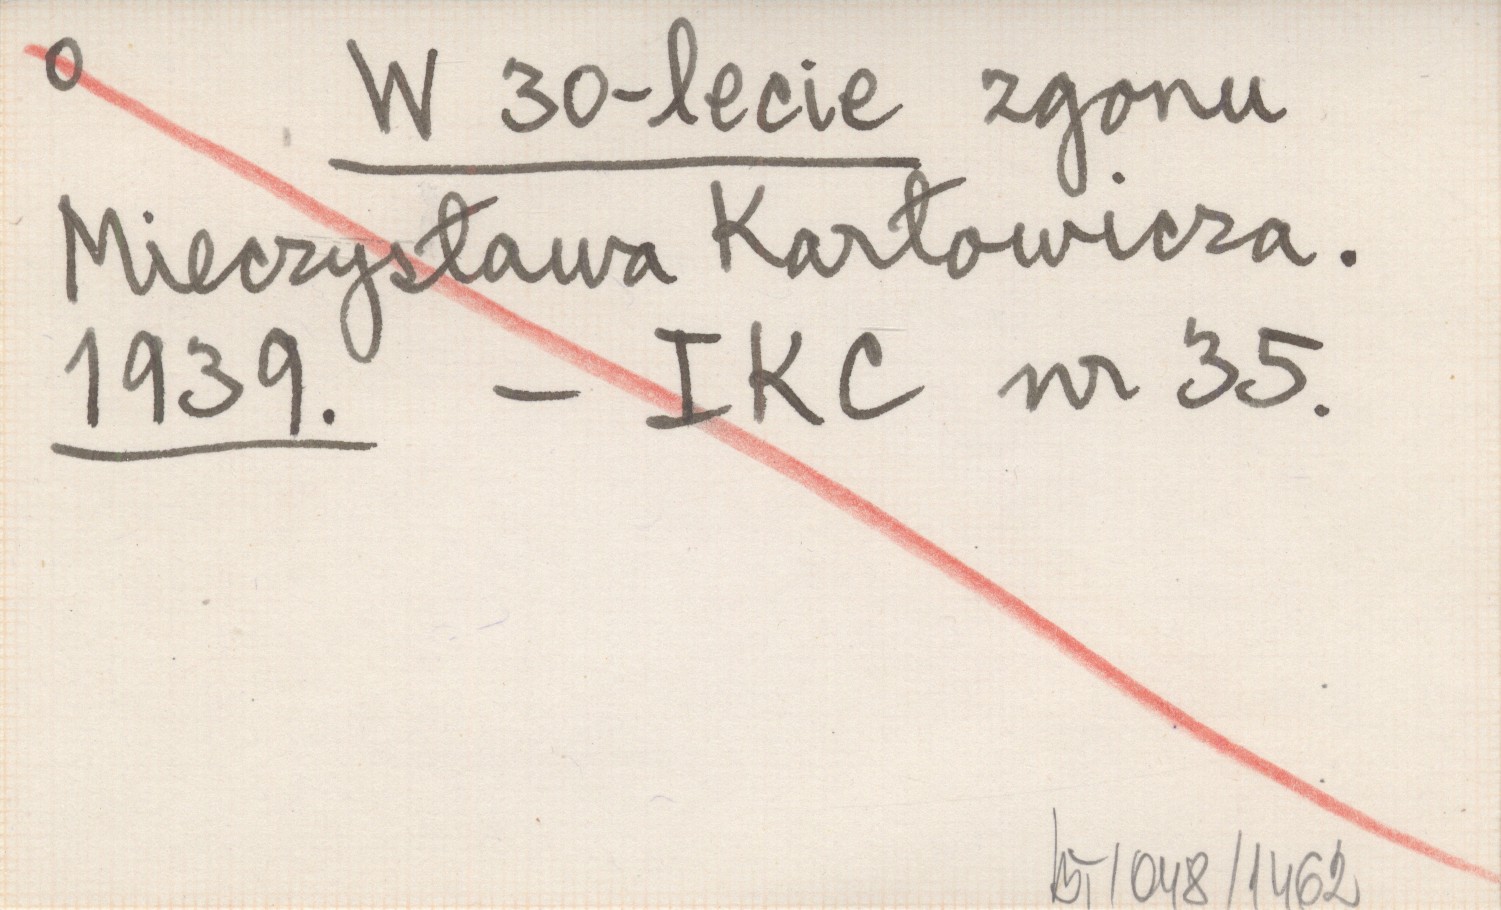 o W 30-lecie zgonu
Mieczysława Karłowicza.
1939. – IKC nr 35.
/048/1462